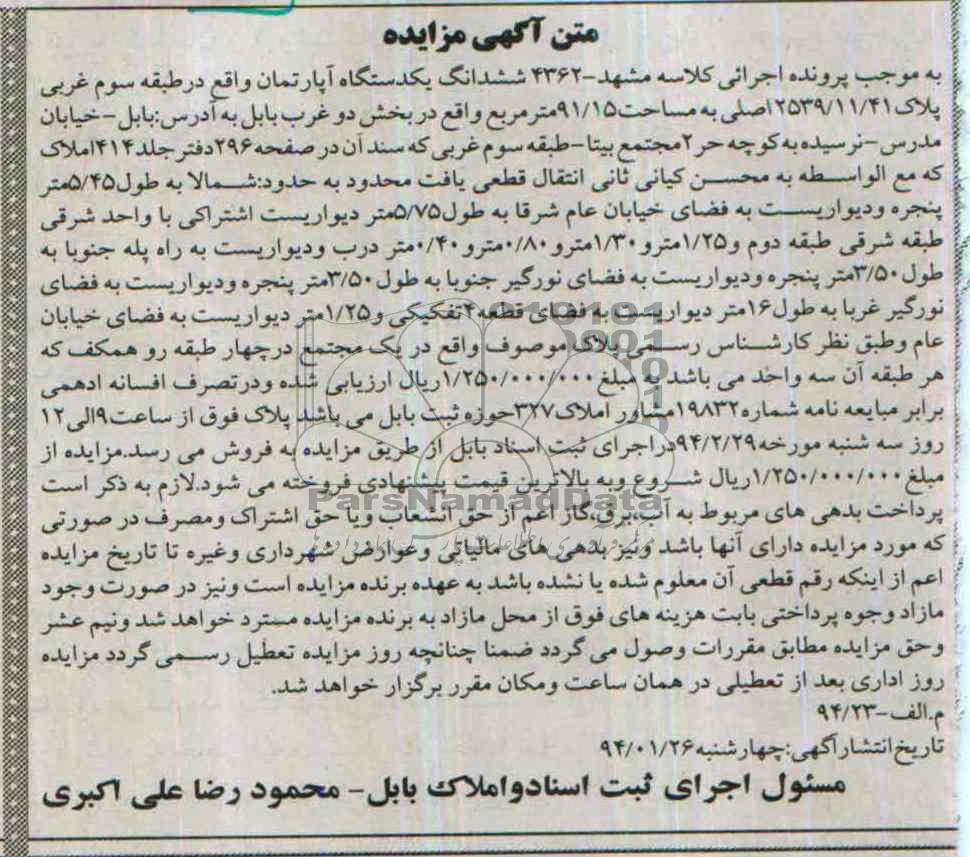 متن آگهی مزایده
به موجب پرونده اجرائی کلاسه مشهد-۴۳۶۲ ششدانگ یکدستگاه آپارتمان واقع درطبقه سوم غربی
پلاک۲۵۳۹/۱۱/۴۱اصلی به مساحت۹۱/۱۵مترمربع واقع در بخش دو غرب بابل به آدرس:بابل-خیابان
مدرس-نرسیده به کوچه حر۲مجتمع بیتا-طبقه سوم غربی که سند آن در صفحه۲۹۶دفترجلد۴۱۴املاک
که مع الواسطه به محسن کیانی ثانی انتقال قطعی یافت محدود به حدود:شمالا به طول۵/۴۵متر
پنجره ودیواریست به فضای خیابان عام شرقا به طول۵/۷۵متر دیواریست اشتراکی با واحد شرقی
طبقه شرقی طبقه دوم و۱/۲۵مترو۱/۳۰مترو۰/۸۰مترو۰/۴۰متر درب ودیواریست به راه پله جنوبا به
طول۳/۵۰متر پنجره ودیواریست به فضای نورگیر جنوبا به طول۳/۵۰متر پنجره ودیواریست به فضای
نورگیر غربا به طول۱۶متر دیواریست به فضای قطعه۴تفکیکی و۱/۲۵متر دیواریست به فضای خیابان
عام وطبق نظر کارشناس رسمی پلاک موصوف واقع در یک مجتمع درچهار طبقه رو همکف که
هر طبقه آن سه واحد می باشد به مبلغ۱/۲۵۰/۰۰۰/۰۰۰ریال ارزیابی شده ودرتصرف افسانه ادهمی
برابر مبایعه نامه شماره۱۹۸۳۲مشاور املاک۳۲۷حوزه ثبت بابل می باشد پلاک فوق از ساعت۹الی۱۲
روز سه شنبه مورخه۹۴/۲/۲۹دراجرای ثبت اسناد بابل از طریق مزایده به فروش می رسد.مزایده از
مبلغ۱/۲۵۰/۰۰۰/۰۰۰ریال شروع وبه بالاترین قیمت پیشنهادی فروخته می شود.لازم به ذکر است
پرداخت بدهی های مربوط به آب،برق،گاز اعم از حق انشعاب ویا حق اشتراک ومصرف در صورتی
که مورد مزایده دارای آنها باشد ونیز بدهی های مالیاتی وعوارض شهرداری وغیره تا تاریخ مزایده
اعم از اینکه رقم قطعی آن معلوم شده یا نشده باشد به عهده برنده مزایده است ونیز در صورت وجود
مازاد وجوه پرداختی بابت هزینه های فوق از محل مازاد به برنده مزایده مسترد خواهد شد ونیم عشر
وحق مزایده مطابق مقررات وصول می گردد ضمنا چنانچه روز مزایده تعطیل رسمی گردد مزایده
روز اداری بعد از تعطیلی در همان ساعت ومکان مقرر برگزار خواهد شد.
م.الف-۹۴/۲۳
تاریخ انتشارآگهی:چهارشنبه۹۴/۰۱/۲۶
مسئول اجرای ثبت اسنادواملاک بابل- محمود رضا علی اکبری
ParsNamadData